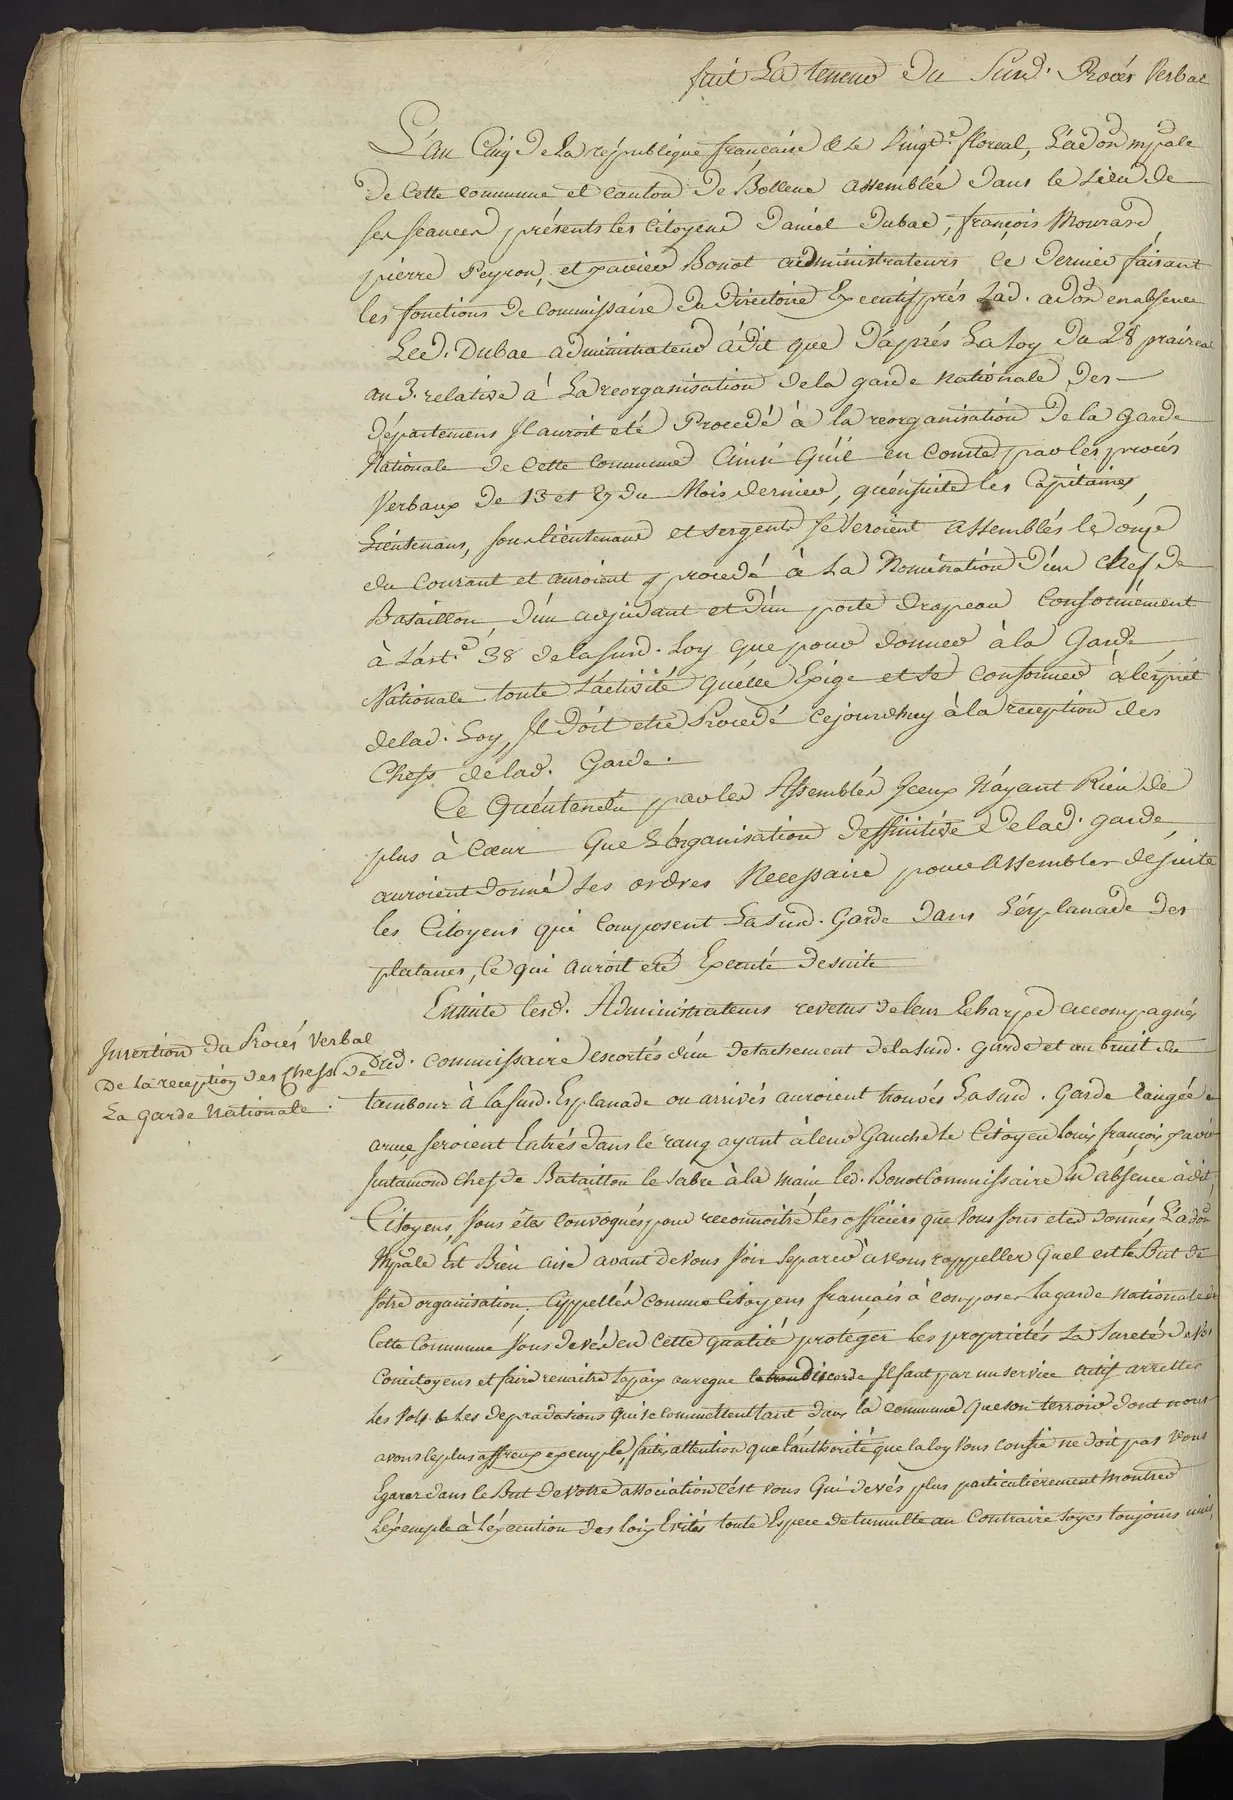 suit La teneur du Susd. Procès Verbal
L'an Cinq de la republique francaise & le vingt.e floreal, L'adôn mpale
de cette commune et canton de Bollene assemblée dans le Lieu de
ses seances présents les Citoyens Daniel Dubac, françois Mourard,
pierre Peyron, et xavier Bonot administrateurs ce dernier faisant
les fonctions de commissaire du Directoire Executif près Lad. adôn en absence
Led. Dubac administrateur à dit que d'après La loy du 28 prairial
an 3. relative à La reorganisation de la garde nationale des
départemens Il auroit eté Procedé à la reorganisation De la Garde
Nationale de cette commune Ainsi qu'il en Conste par les procés
Verbaux de 13 et 27 du Mois dernier, qu'ensuite les Capitaines,
Lieutenans, souslieutenans et sergents se seroient assemblés le onze
du courant et auroient procedé à La Nomination d'un chef de
Bataillon, d'un adjudant et d'un porte drapeau Conformément
à L'art.e 38 de la susd. Loy que pour donner à la Garde
Nationale toute L'activité qu'elle Exige et se conformer à l'esprit
de lad. Loy, Il doit etre Procedé cejourdhuy à la reception des
Chefs de lad. Garde.
Ce qu'entendu par les Assemblés Iceux N'ayant Rien de
plus à Cœur que L'organisation deffinitive de lad. garde
auroient donné les ordres Necessaire pour assembler de suite
les Citoyens qui composent La susd. Garde dans L'ésplanade des
platanes, ce qui auroit eté Executé de suite
Ensuite lesd. Administrateurs revetus de leur Echarpe accompagnés
Insertion du Procés Verbal
De la reception des Chefs de
La garde Nationale.
dud. commissaire escortés d'un detachement de la susd. garde et au bruit du
tambour à la susd. Esplanade ou arrivés auroient trouvés La susd. Garde rangée en
arme seroient Entrés dans le rang ayant à leur Gauche le Citoyen louis françois xavier
Justamond chef de Bataillon le sabre à la main led. Bonot Commissaire en absence à dit,
Citoyens, vous êtes convoqués pour reconnoitre les officiers que vous vous etes donnés L'adôn
Mpâle Est Bien aise avant de vous voir separer à vous rappeller quel est le But de
votre organisation. Appellés comme Citoyens francais à composer la garde nationale de
Cette Commune vous devés en cette qualité protéger les propriétés La Sureté de vos
Concitoyens et faire renaitre la paix ou regne la discorde Il faut par un service actif arretter
les vols & les depradations qui se commettent tant dans la commune que son terroir dont nous
avons le plus affreux exemple, faites attention que l'authorité que la loy vous confie ne doit pas vous
Egarer dans le But de votre association c'est vous qui devés plus particulierement montrer
L'éxemple à L'éxecution des loix Evités toute Espece de tumulte au Contraire soyes toujours unis,